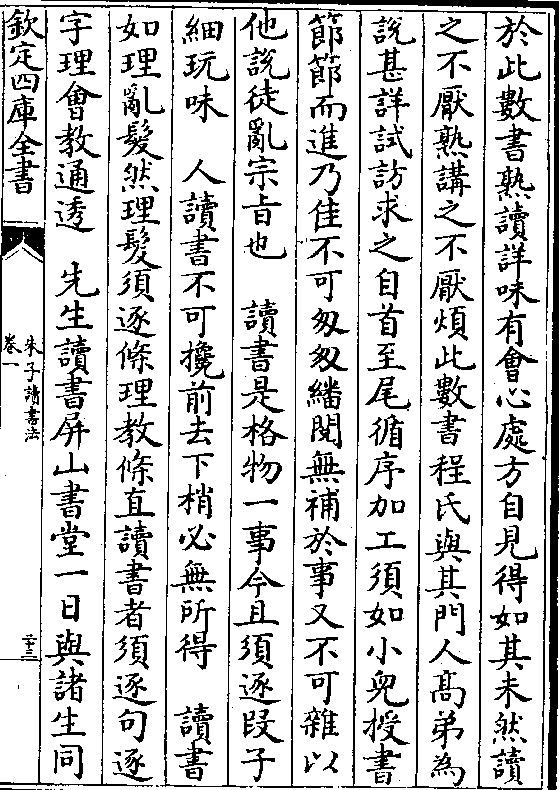 於此數書熟讀詳味有會心處方自見得如其未然讀
之不厭熟講之不厭煩此數書程氏與其門人髙弟為
說甚詳試訪求之自首至尾循序加工須如小兒授書
節節而進乃佳不可匆匆繙閱無補於事又不可雜以
他說徒亂宗旨也　讀書是格物一事今且須逐段子
細玩味　人讀書不可攙前去下梢必無所得　讀書
如理亂髮然理髮須逐條理教條直讀書者須逐句逐
字理會教通透　先生讀書屏山書堂一日與諸生同
欽定四庫全書
朱子讀書法
卷一
二十三